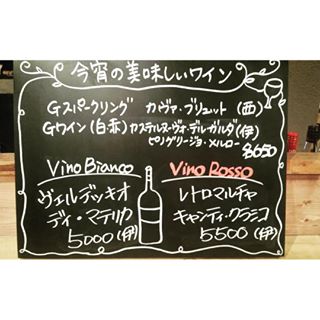 今宵の美味しいワイン
Gスパークリング カヴァ・ブリュット (西)
Gワイン(白・赤)カステルヌーヴォ・デル・ガルダ(伊)
ピノグリージョ・メルロー
各650
Vino Bianco
ヴェルデッキオ
ディ・マテリカ
5000(伊)
Vino Rosso
レトロマルチャ
キャンティ・クラシコ
5500(伊)